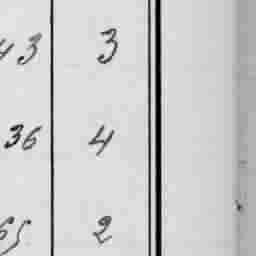 43 3
36 4
65 2